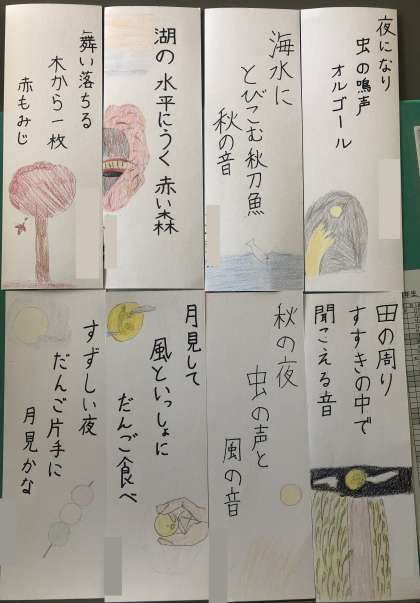 夜になり
虫の鳴声
オルゴール
海水に
とびこむ秋刀魚
秋の音
湖の水平にうく赤い森
舞い落ちる
木から一枚
赤もみじ
田の周り
すすきの中で
聞こえる音
秋の夜
虫の声と
風の音
月見して
風といっしょに
だんご食べ
すずしい夜
だんご片手に
月見かな